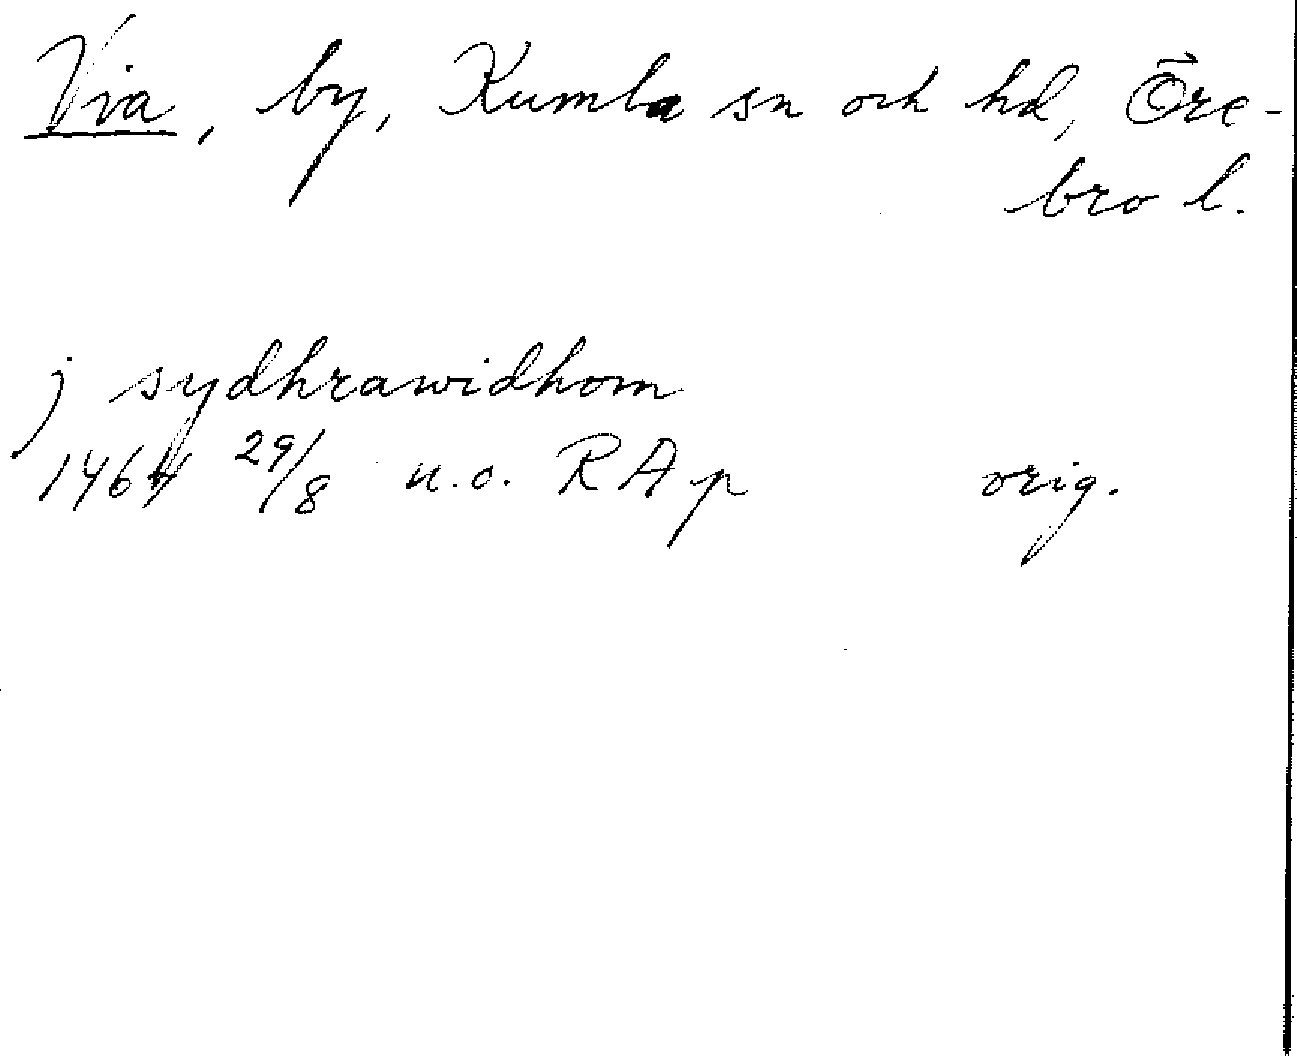 Via, by, Kumla sn och hd, Öre-
bro l.
j sydhrawidhom
1464 29/8 u.o. RAp orig.